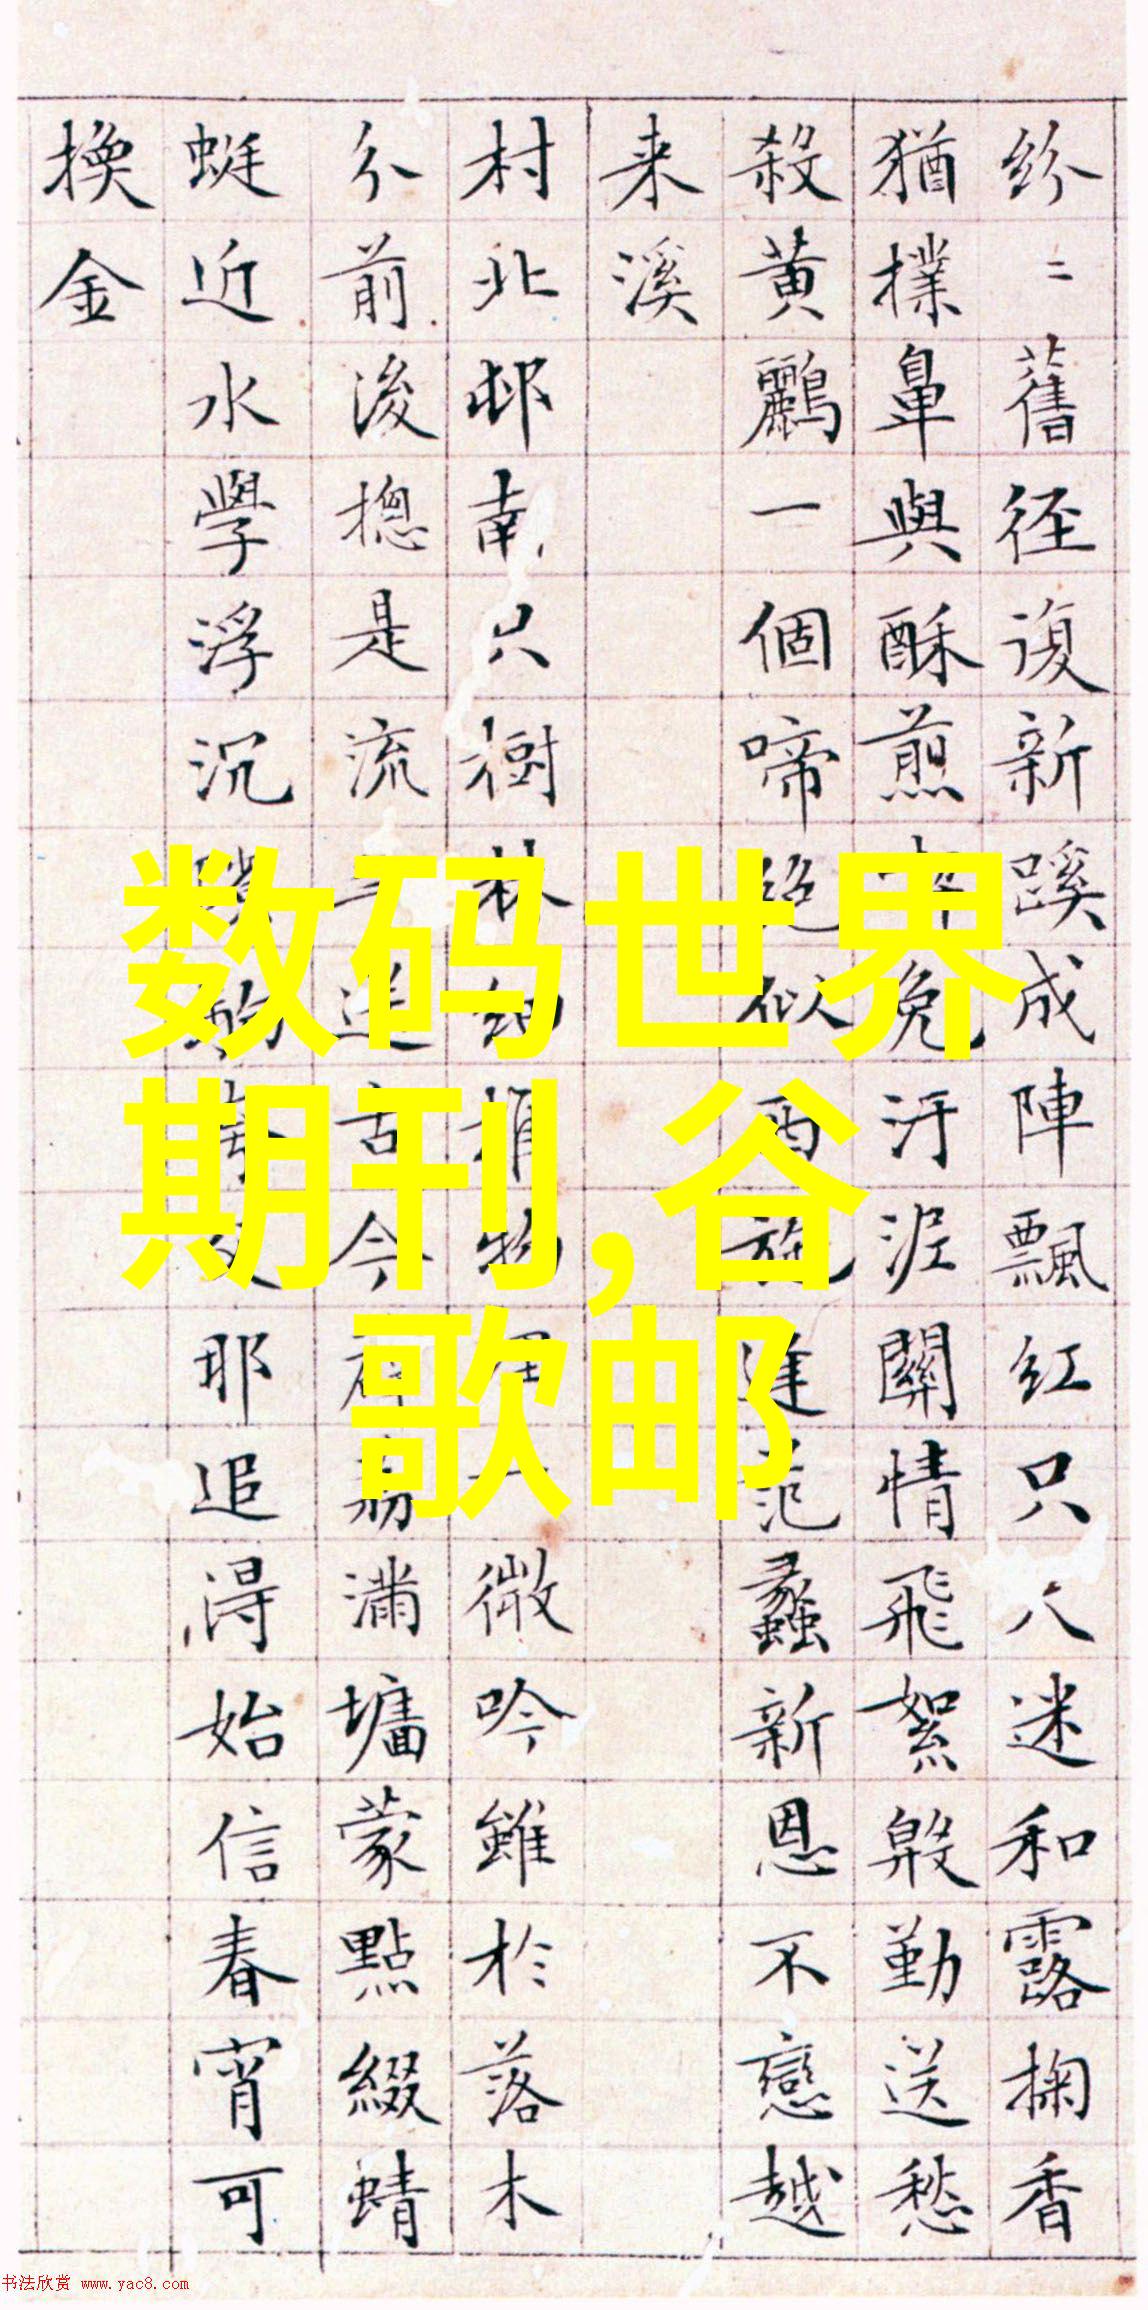 纷二舊径復新蹊成陣飄紅只人迷和露掬香
猶撲鼻與酥煎 免汙泥關情飛絮殷勤送愁
殺黄鸝一個啼 似西施進范蠡新恩不戀越
来溪
村北邨南只樹林 物 微吟雖於落木
分前後摠是流 古今 滿墉蒙點綴蜻
蜓近水學浮沉 耶追得始信春宵可
換金
数码世界
期刊,谷
歌邮
书法欣赏 www.yac8.com